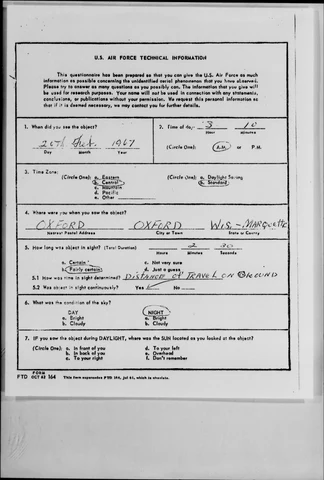 U.S. AIR FORCE TECHNICAL INFORMATION
This questionnaire has been prepared so that you can give the U.S. Air Force as much
information as possible concerning the unidentified aerial phenomenon that you have observed.
Please try to answer as many questions as you possibly can. The information that you give will
be used for research purposes. Your name will not be used in connection with any statements,
conclusions, or publications without your permission. We request this personal information so
that if it is deemed necessary, we may contact you for further details.
1. When did you see the object?
20th Oct. 1967
Day Month Year
2. Time of day: 3 10
Hour Minutes
(Circle One): A.M. or P.M.
3. Time Zone:
(Circle One): a. Eastern
b. Central
c. Mountain
d. Pacific
e. Other
(Circle One): a. Daylight Saving
b. Standard
4. Where were you when you saw the object?
OXFORD OXFORD WIS-MARQUETTE
Nearest Postal Address City or Town State or County
5. How long was object in sight? (Total Duration) 2 30
Hours Minutes Seconds
a. Certain c. Not very sure
b. Fairly certain d. Just a guess
5.1 How was time in sight determined? DISTANCE OF TRAVEL ON GROUND
5.2 Was object in sight continuously? Yes No
6. What was the condition of the sky?
DAY NIGHT
a. Bright a. Bright
b. Cloudy b. Cloudy
7. IF you saw the object during DAYLIGHT, where was the SUN located as you looked at the object?
(Circle One): a. In front of you d. To your left
b. In back of you e. Overhead
c. To your right f. Don't remember
FORM
FTD OCT 62 164 This form supersedes FTD 164, Jul 61, which is obsolete.